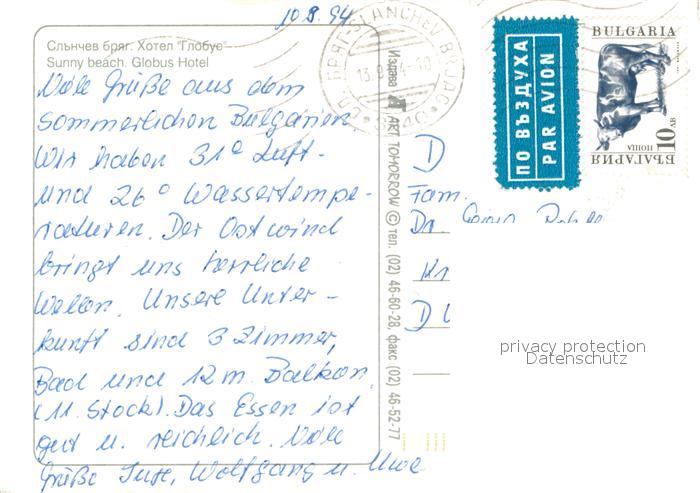 10.8.94
Слънчев бряг. Хотел "Глобус"
Sunny beach. Globus Hotel
Viele Grüße aus dem
sommerlichen Bulgarien.
Wir haben 31° Luft-
und 26° Wassertempe-
raturen. Der Ostwind
bringt uns herrliche
Wellen. Unsere Unter-
kunft sind 3 Zimmer,
Bad und 12 m Balkon.
(11. Stock). Das Essen ist
gut u. reichlich. Viele
Grüße Wolfgang u. Uwe
Издава ART TOMORROW © тел. (02) 46-60-28, факс (02) 46-52-77
SLANCHEV BRJAG
ПО ВЪЗДУХА
PAR AVION
BULGARIA
10 ЛВ
ПОЩА
БЪЛГАРИЯ
D
Fam.
Dr.
privacy protection
Datenschutz